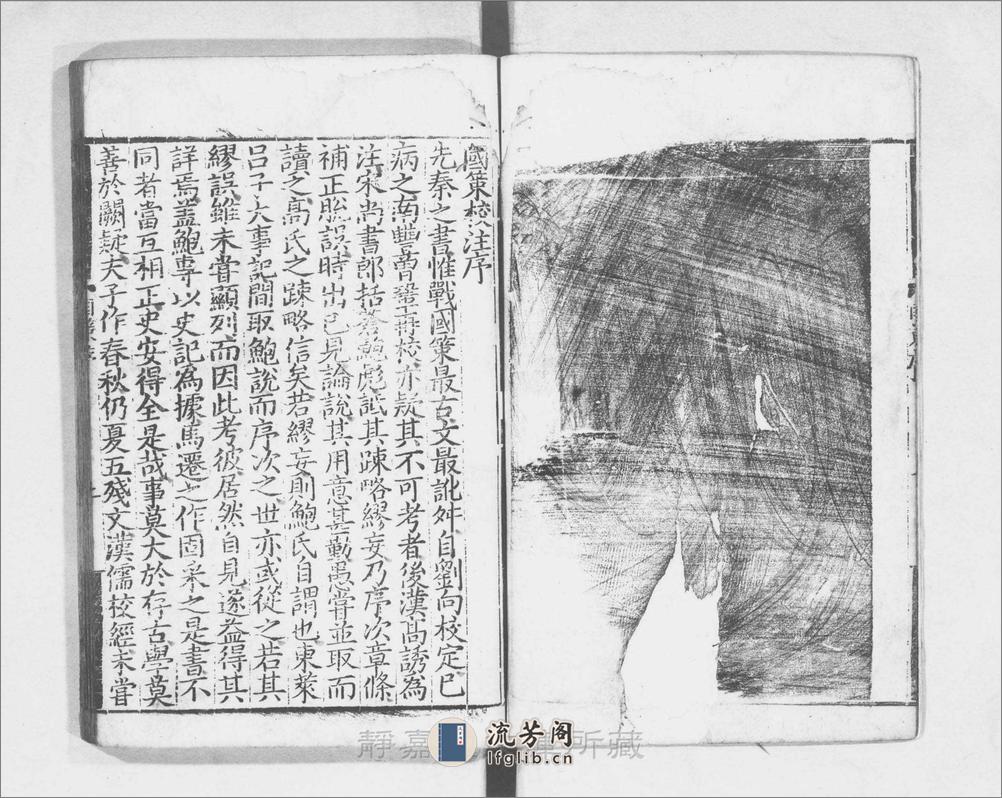 國策校注序
先秦之書惟戰國策最古文最訛舛自劉向校定已
病之南豐曾鞏再校亦疑其不可考者後漢高誘為
注宋尚書郎括蒼鮑彪詆其疎略繆妄乃序次章條
補正脫誤時出己見論說其用意甚勤愚嘗並取而
讀之高氏之疎略信矣若繆妄則鮑氏自謂也東萊
呂子大事記間取鮑說而序次之世亦或從之若其
繆誤雖未嘗顯列而因此考彼居然自見遂益得其
詳焉盖鮑專以史記為據馬遷之作固采之是書不
同者當互相正史安得全是哉事莫大於存古學莫
善於闕疑夫子作春秋仍夏五殘文漢儒校經未嘗
靜嘉 所藏
流芳阁
lfglib.cn